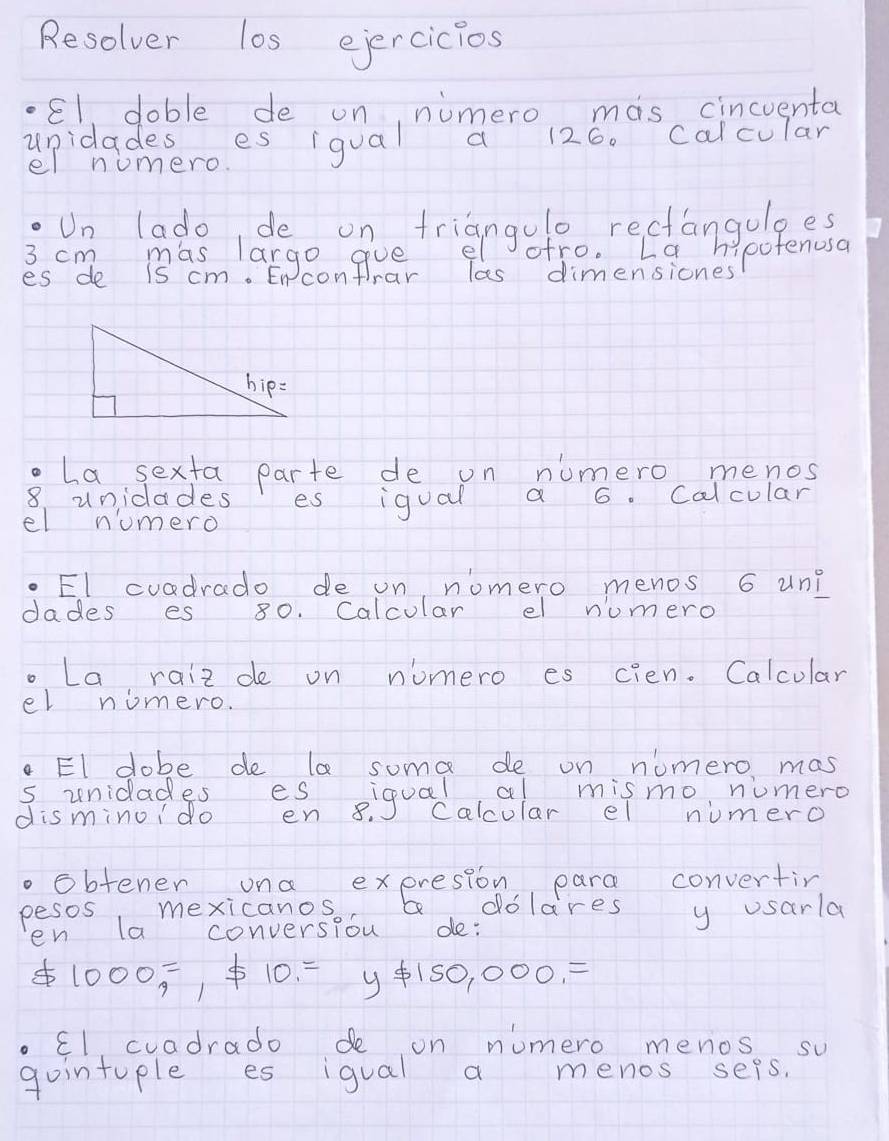 Resolver los ejercicios
• El doble de un número más cincuenta
unidades es igual a 126. Calcular
el número.
• Un lado de un triángulo rectángulo es
3 cm más largo que el otro. La hipotenusa
es de 15 cm. Encontrar las dimensiones
hip=
• La sexta parte de un número menos
8 unidades es igual a 6. Calcular
el número
• El cuadrado de un número menos 6 uni
dades es 80. Calcular el número
• La raíz de un número es cien. Calcular
el número.
• El dobe de la suma de un número mas
5 unidades es igual al mismo número
disminuído en 8. Calcular el número
• Obtener una expresión para convertir
pesos mexicanos a dólares y usarla
en la conversión de:
$1000,=, $10.= y $150,000.=
• El cuadrado de un número menos su
quintuple es igual a menos seis.